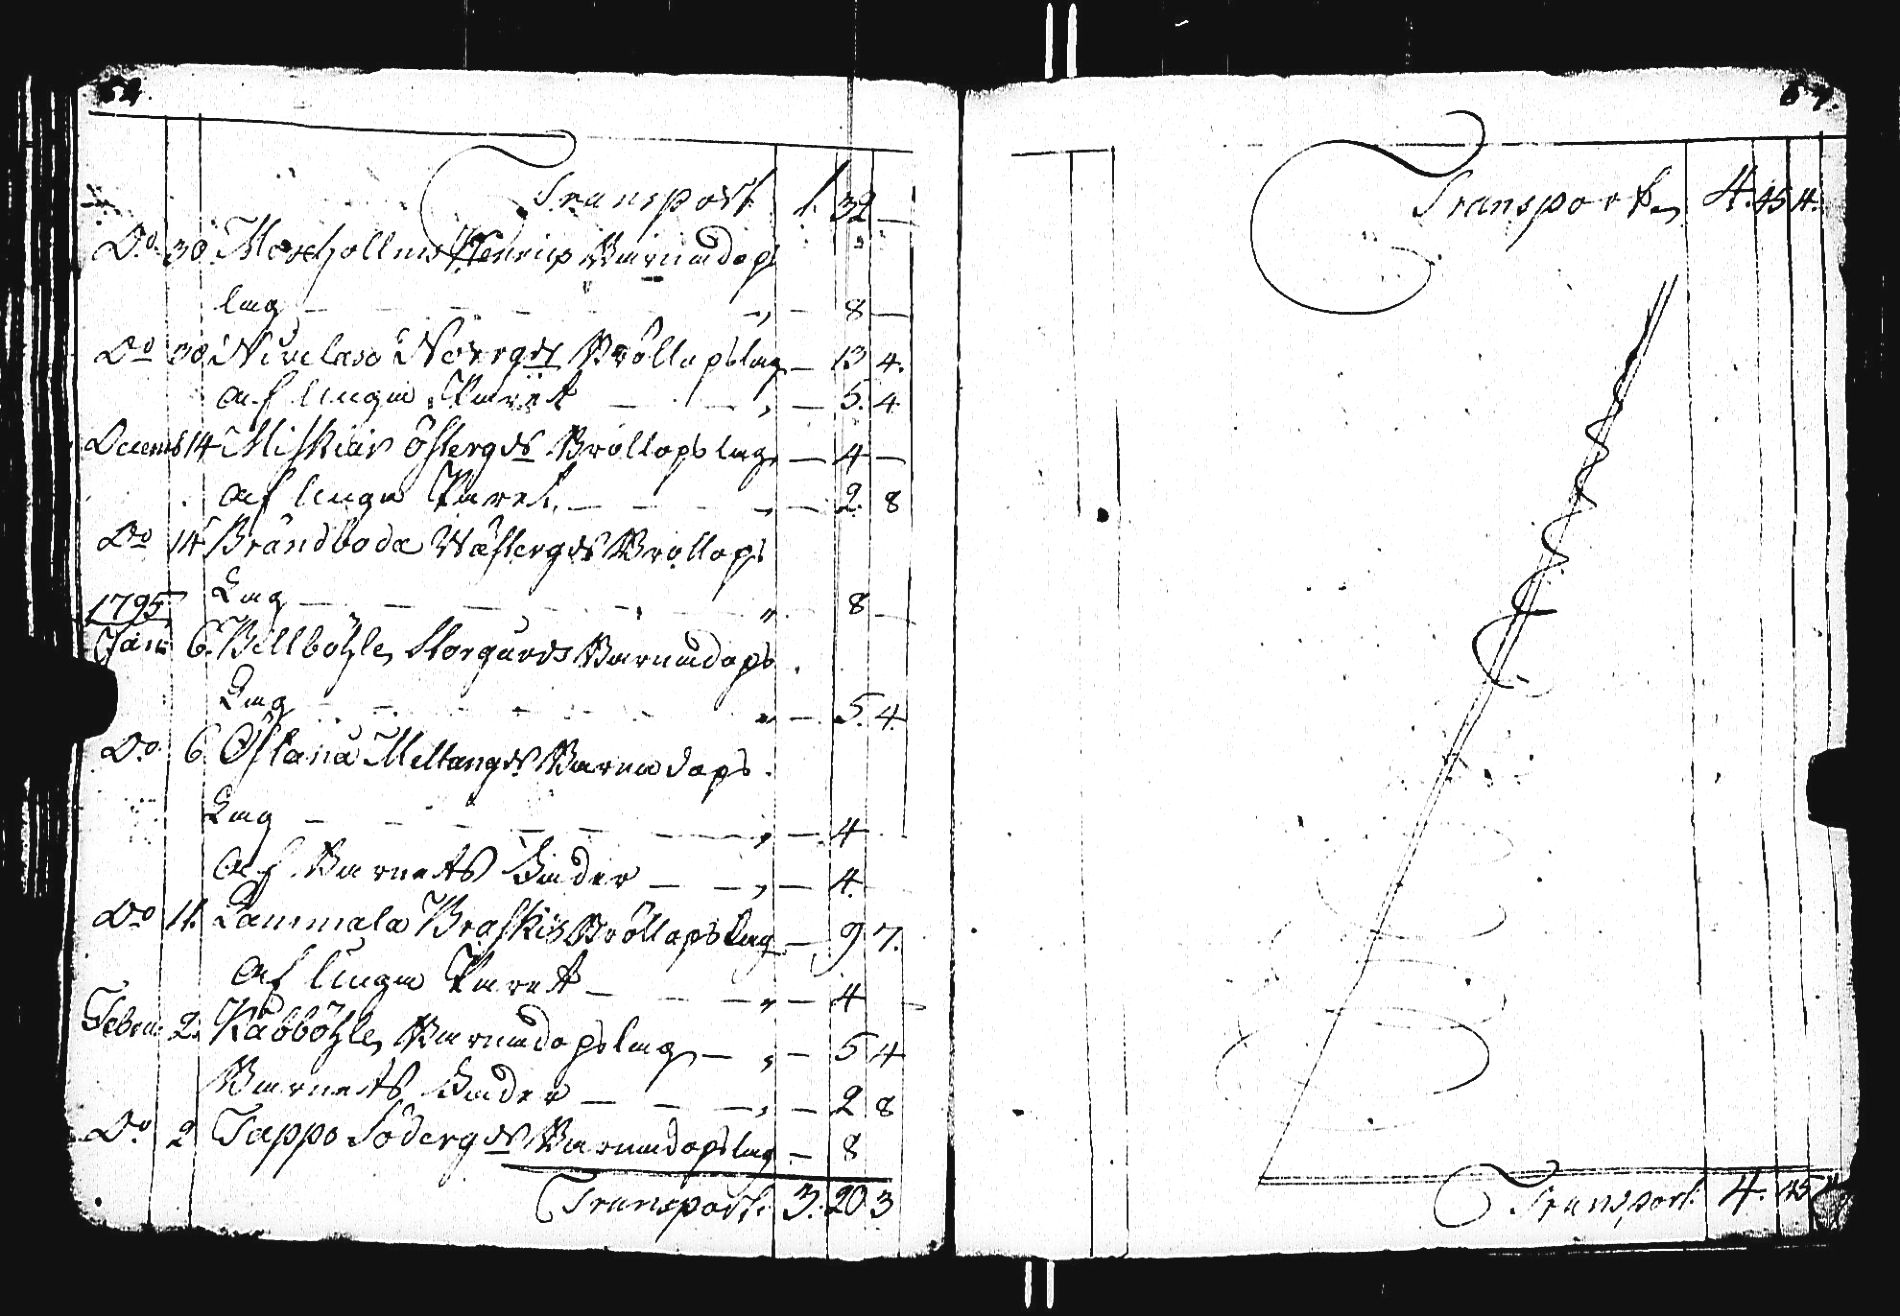 54.
Transport 1. 32 —
Do 30 Marcholms Henrics Barnsdops
lag — — 8 —
Do 30 Niclaso Norrgds Bröllopslag — 13 4.
Af Unga Paret — — 5. 4
Decemb 14 Miskiär Östergds Bröllopslag, — 4 —
Af Unga Paret. — — 2. 8
Do 14 Brändboda Wästergds Bröllops
Lag — — 8 —
1795
Jan: 6. Billböhle Storgards Barnsdops
Lag — — 5. 4.
Do 6 Östanå Mellangds Barnsdops
Lag — — 4
Af Barnets Fader — — 4.
Do 11. Lammala Braskis Bröllopslag — 9 7.
Af Unga Paret — — 4 —
Febru: 2. Kabböhle Barnsdopslag — — 5 4
Barnets Fader — — 2 8
Do 2 Tappo Södergds Barnsdopslag — 8
Transport. 3. 20 3
Transport 4. 45 4.
Transport. 4. 45